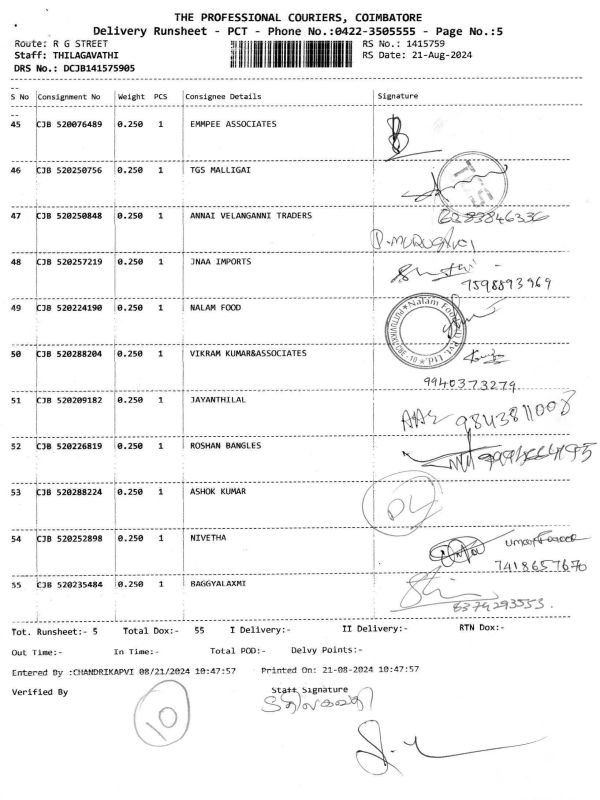 THE PROFESSIONAL COURIERS, COIMBATORE
Delivery Runsheet - PCT - Phone No.:0422-3505555 - Page No.:5
Route: R G STREET RS No.: 1415759
Staff: THILAGAVATHI RS Date: 21-Aug-2024
DRS No.: DCJB141575905
S No Consignment No Weight PCS Consignee Details Signature
45 CJB 520076489 0.250 1 EMMPEE ASSOCIATES
46 CJB 520250756 0.250 1 TGS MALLIGAI
TGS
47 CJB 520250848 0.250 1 ANNAI VELANGANNI TRADERS 6283846336
48 CJB 520257219 0.250 1 JNAA IMPORTS
7598893969
49 CJB 520224190 0.250 1 NALAM FOOD
50 CJB 520288204 0.250 1 VIKRAM KUMAR&ASSOCIATES
9940373279
51 CJB 520209182 0.250 1 JAYANTHILAL
9843811008
52 CJB 520226819 0.250 1 ROSHAN BANGLES
53 CJB 520288224 0.250 1 ASHOK KUMAR
54 CJB 520252898 0.250 1 NIVETHA
7418657670
55 CJB 520235484 0.250 1 BAGGYALAXMI
8374293553
Tot. Runsheet:- 5 Total Dox:- 55 I Delivery:- II Delivery:- RTN Dox:-
Out Time:- In Time:- Total POD:- Delvy Points:-
Entered By :CHANDRIKAPVI 08/21/2024 10:47:57 Printed On: 21-08-2024 10:47:57
Verified By Staff Signature
10